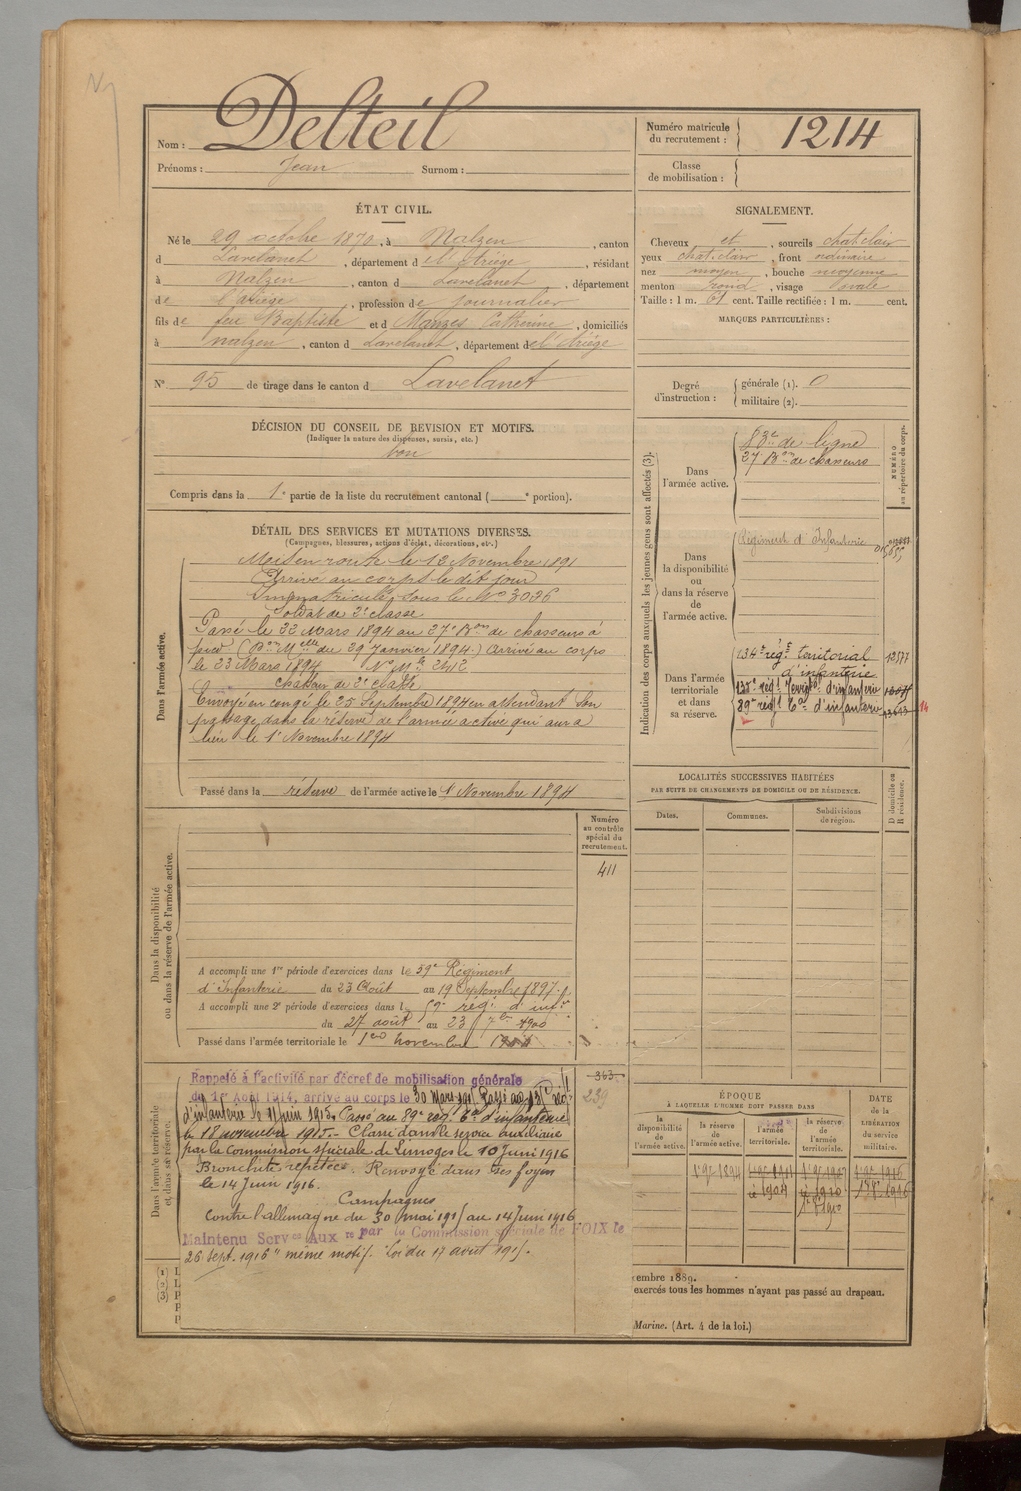 Nom : Delteil
Prénoms : Jean Surnom :
Numéro matricule du recrutement : 1214
Classe de mobilisation :
ÉTAT CIVIL.
Né le 29 octobre 1870, à Nalzen, canton
d Lavelanet, département d e l'Ariège, résidant
à Nalzen, canton d Lavelanet, département
d e l'Ariège, profession d e journalier
fils d e feu Baptiste et d Manzes Catherine, domiciliés
à Nalzen, canton d Lavelanet, département d e l'Ariège
N° 95 de tirage dans le canton d Lavelanet
SIGNALEMENT.
Cheveux et, sourcils chat. clair
yeux chat. clair, front ordinaire
nez moyen, bouche moyenne
menton rond, visage ovale
Taille : 1 m. 61 cent. Taille rectifiée : 1 m. cent.
MARQUES PARTICULIÈRES :
Degré d'instruction : générale (1). 0
militaire (2).
DÉCISION DU CONSEIL DE REVISION ET MOTIFS.
(Indiquer la nature des dispenses, sursis, etc.)
bon
Compris dans la 1e partie de la liste du recrutement cantonal ( e portion).
DÉTAIL DES SERVICES ET MUTATIONS DIVERSES.
(Campagnes, blessures, actions d'éclat, décorations, etc.)
Dans l'armée active.
Mis en route le 12 Novembre 1891
Arrivé au corps le dit jour
Immatriculé sous le N° 3036
Soldat de 2e classe
Passé le 22 Mars 1894 au 27e Bon de chasseurs à
pied (Don Mlle du 29 Janvier 1894) Arrivé au corps
le 23 Mars 1894 N° Mle 2412
Chasseur de 2e classe
Envoyé en congé le 25 Septembre 1894 en attendant son
passage dans la réserve de l'armée active qui aura
lieu le 1e Novembre 1894
Passé dans la réserve de l'armée active le 1e Novembre 1894
Indication des corps auxquels les jeunes gens sont affectés (3).
NUMÉRO au répertoire du corps.
Dans l'armée active.
83e de ligne
27 Bon de chasseurs
Dans la disponibilité ou dans la réserve de l'armée active.
Régiment d'Infanterie
Dans l'armée territoriale et dans sa réserve.
134e régt territorial 12577
d'infanterie
133e régt territ. d'infanterie
89e régt Tal d'infanterie 14
LOCALITÉS SUCCESSIVES HABITÉES
PAR SUITE DE CHANGEMENTS DE DOMICILE OU DE RÉSIDENCE.
Dates. Communes. Subdivisions de région. D domicile ou R résidence.
Dans la disponibilité ou dans la réserve de l'armée active.
Numéro au contrôle spécial du recrutement.
411
A accompli une 1re période d'exercices dans le 59e Régiment
d'Infanterie du 23 Août au 19 Septembre 1897.
A accompli une 2e période d'exercices dans l 59e régt d'infie
du 27 août au 23 7bre 1900
Passé dans l'armée territoriale le 1er novembre
Dans l'armée territoriale et dans sa réserve.
363
239
Rappelé à l'activité par décret de mobilisation générale
du 1er Août 1914, arrive au corps le 30 Mars 1915 Passé au
d'infanterie le 11 Juin 1915. Passé au 89e régt Tal d'infanterie
le 18 novembre 1915. - Classé dans le service auxiliaire
par la commission spéciale de Limoges le 10 Juin 1916
Bronchite répétée. Renvoyé dans ses foyers
le 14 Juin 1916.
Campagnes
contre l'allemagne du 30 mai 1915 au 14 juin 1916
Maintenu Servce Auxre par la Commission spéciale de FOIX le
26 sept. 1916 "même motif. Loi du 17 août 1915.
ÉPOQUE
À LAQUELLE L'HOMME DOIT PASSER DANS
la disponibilité de l'armée active. la réserve de l'armée active. l'armée territoriale. la réserve de l'armée territoriale.
DATE de la LIBÉRATION du service militaire.
1e 9e 1894
(1)
(2)
(3)
embre 1889.
exercés tous les hommes n'ayant pas passé au drapeau.
Marine. (Art. 4 de la loi.)